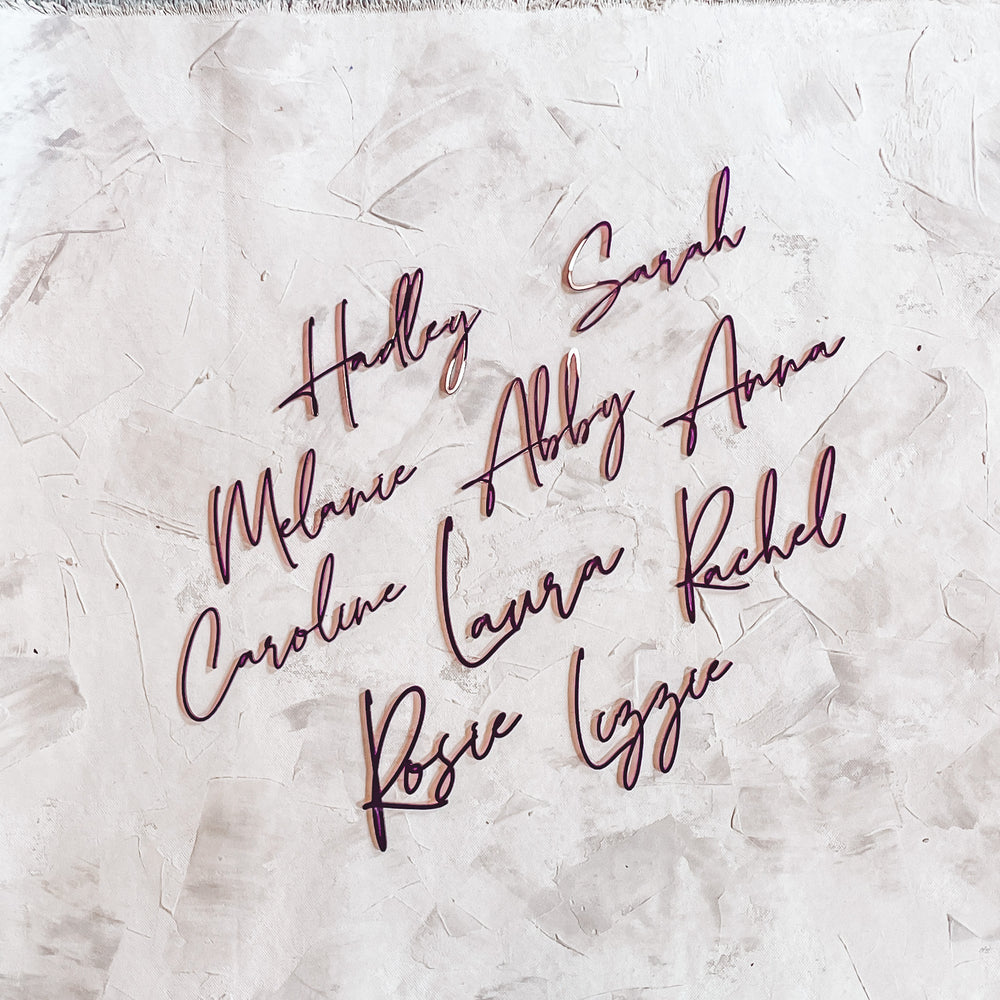 Hadley Sarah
Melanie Abby Anna
Caroline Laura Rachel
Rosie Lizzie